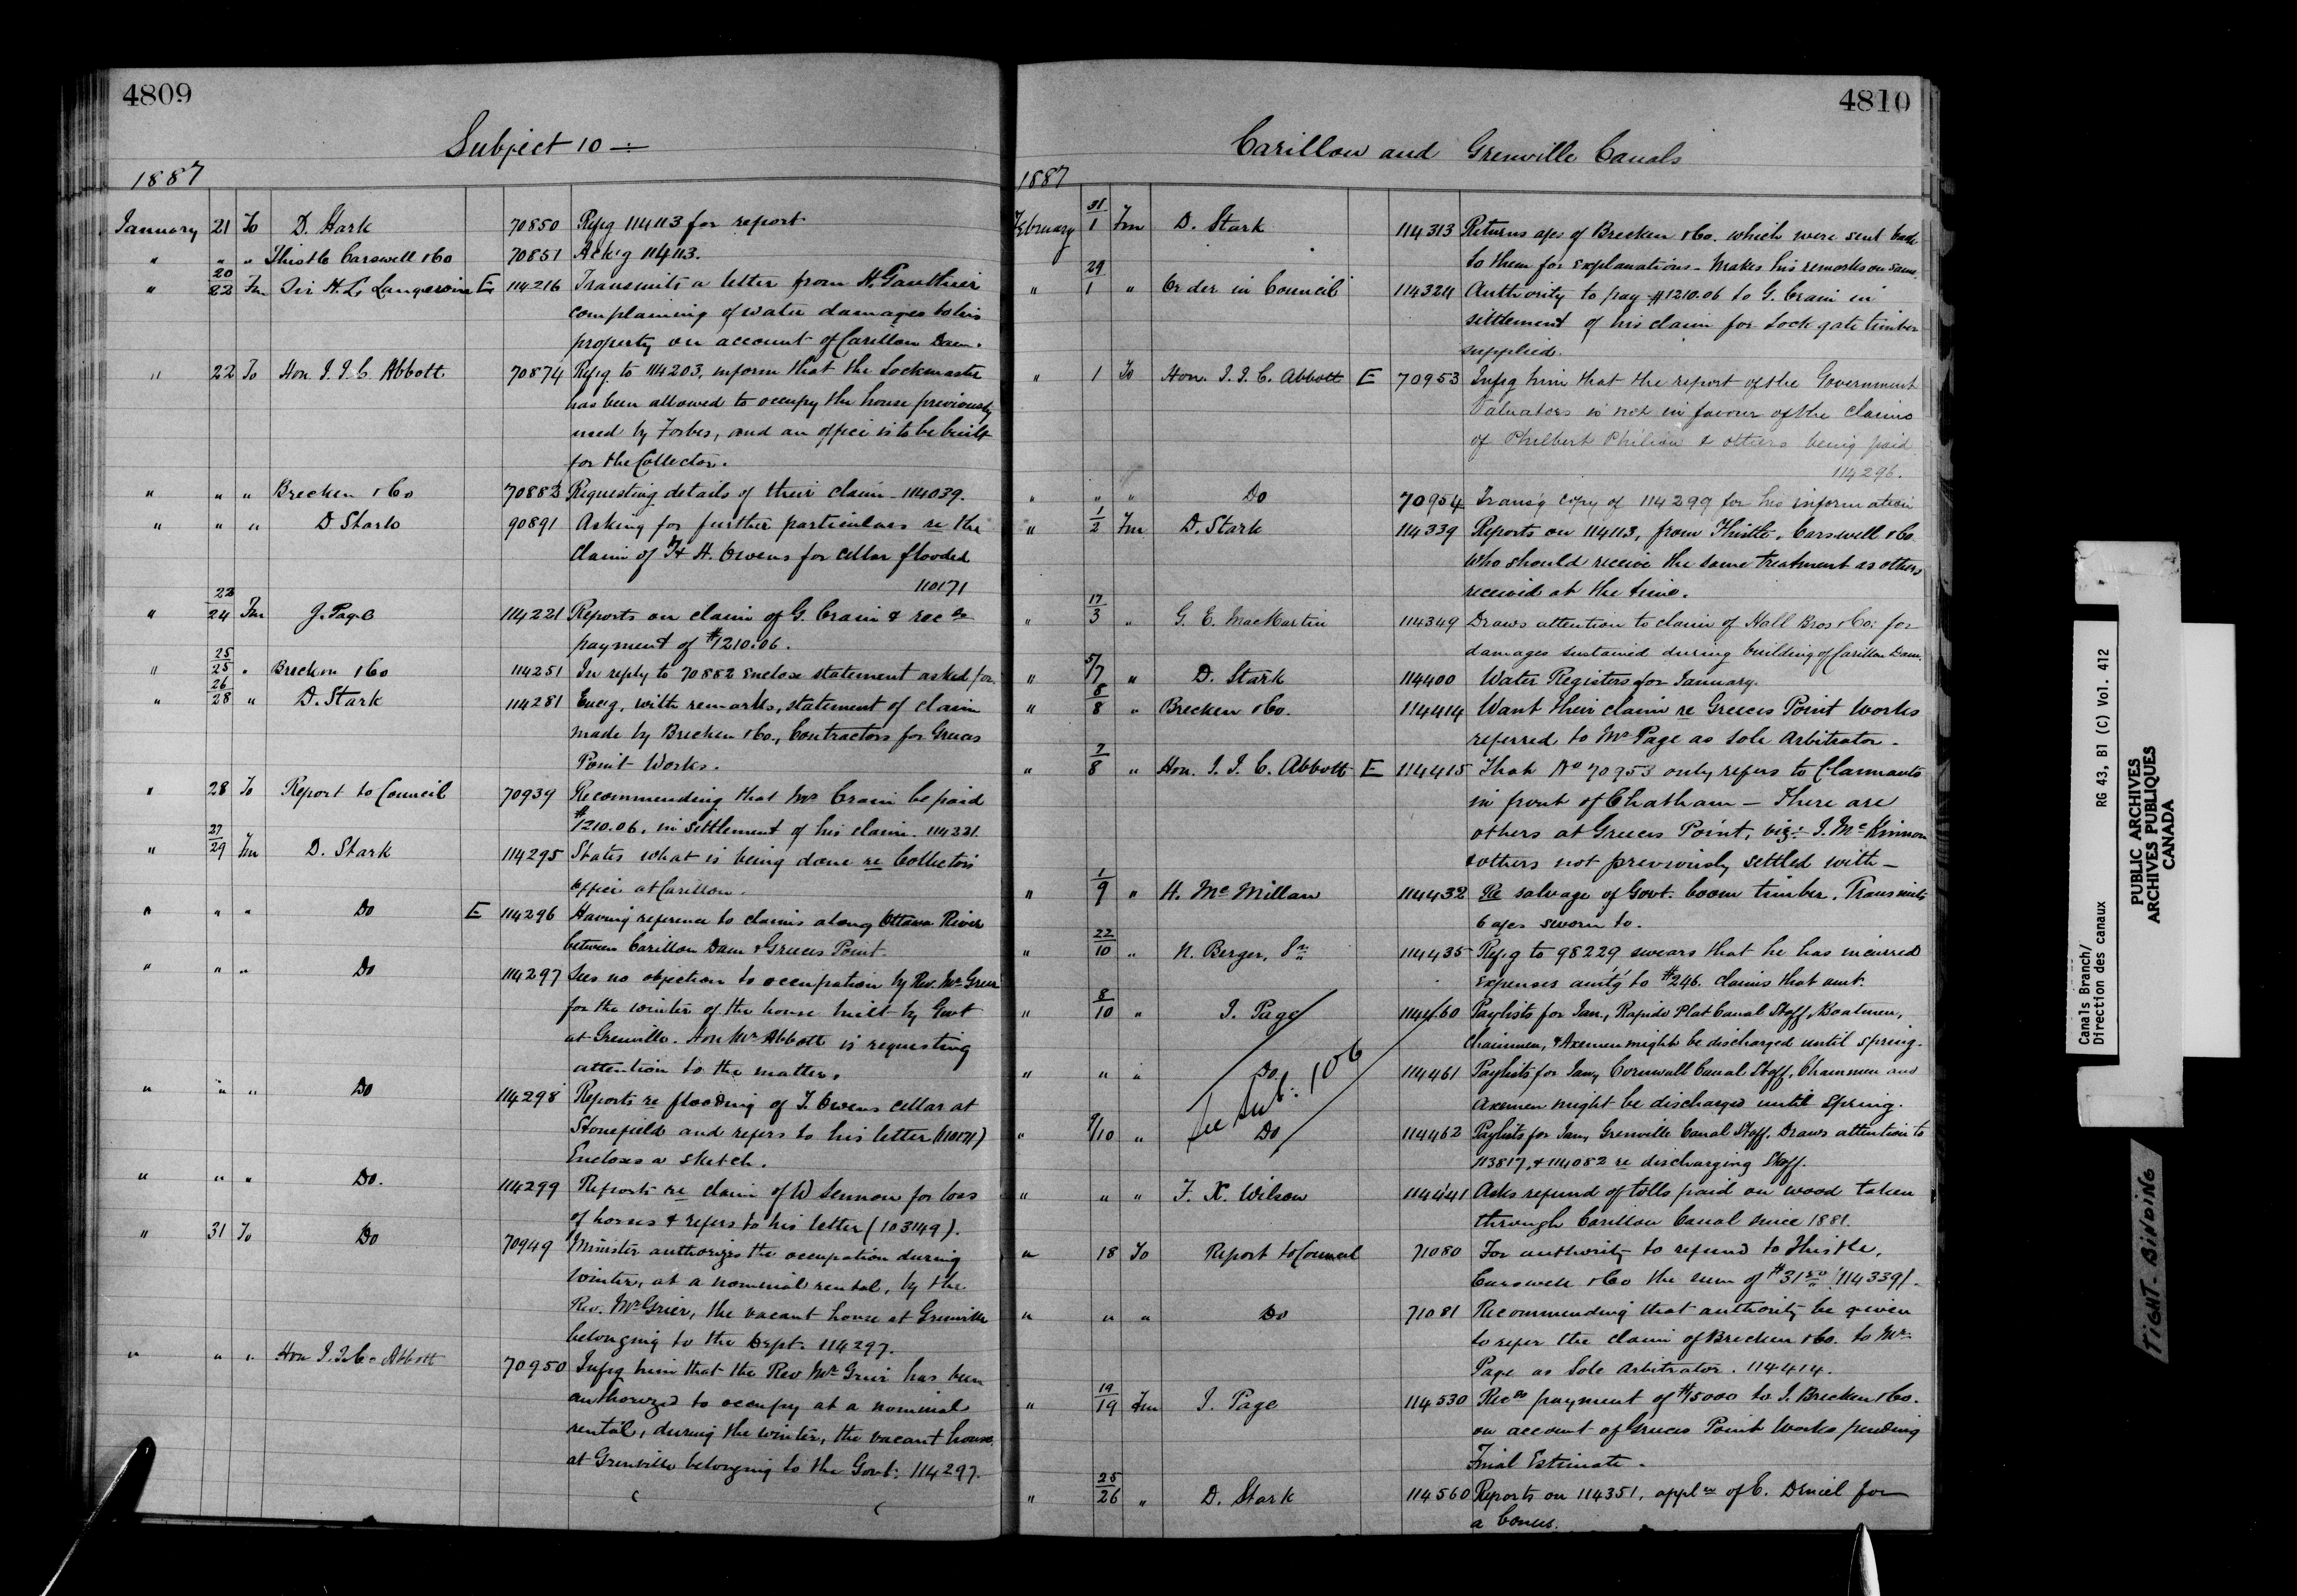 4809
Subject 10 —
1887
January 21 To D. Stark 70850 Refg 114113 for report
" " " Thistle Carswell & Co 70851 Ack'g 114113.
" 20/22 Fm Sir H. L. Langevin E 114216 Transmits a letter from H. Gauthier
complaining of water damages to his
property on account of Carillon Dam.
" 22 To Hon. J. J. C. Abbott 70874 Refg to 114203, inform that the Lockmaster
has been allowed to occupy the house previously
used by Forbes, and an office is to be built
for the Collector.
" " " Brecken & Co 70882 Requesting details of their claim - 114039.
" " " D Stark 90891 Asking for further particulars re the
claim of H. Owens for cellar flooded
110171
" 22/24 Fm J. Page 114221 Reports on claim of G. Crain & recds
payment of $1210.06.
" 25/25 " Brecken & Co 114251 In reply to 70882 enclose statement asked for.
" 26/28 " D. Stark 114281 Encg, with remarks, statement of claim
made by Brecken & Co., Contractors for Greeces
Point Works.
" 28 To Report to Council 70939 Recommending that Mr Crain be paid
$1210.06, in settlement of his claim. 114221.
" 27/29 Fm D. Stark 114295 States what is being done re Collectors
office at Carillon.
" " " Do E 114296 Having reference to claims along Ottawa River
between Carillon Dam & Greeces Point.
" " " Do 114297 Sees no objection to occupation by Rev. Mr Grier
for the winter of the house built by Govt
at Grenville. Hon Mr Abbott is requesting
attention to the matter.
" " " Do 114298 Reports re flooding of T. Owens cellar at
Stonefield and refers to his letter (110171)
Encloses a sketch.
" " " Do. 114299 Reports re claim of W Lennon for loss
of horses & refers to his letter (103149).
" 31 To Do 70949 Minister authorizes the occupation during
Winter, at a nominal rental, by the
Rev. Mr Grier, the vacant house at Grenville
belonging to the Dept. 114297.
" " " Hon J. J. C. Abbott 70950 Infg him that the Rev Mr Grier has been
authorized to occupy at a nominal
rental, during the winter, the vacant house
at Grenville belonging to the Govt: 114297.
4810
Carillon and Grenville Canals
1887
February 31/1 Fm D. Stark 114313 Returns a/cs of Brecken & Co. which were sent back
to them for explanations - Makes his remarks on same.
" 29/1 " Order in Council 114324 Authority to pay $1210.06 to G. Crain in
settlement of his claim for Lock gate timber
supplied.
" 1 To Hon. J. J. C. Abbott E 70953 Infg him that the report of the Government
Valuators is not in favour of the claims
of Philbert Philion & others being paid
114296.
" " " Do 70954 Trans'g copy of 114299 for his information
" 1/2 Fm D. Stark 114339 Reports on 114113, from Thistle, Carswell & Co.
Who should receive the same treatment as others
received at the time.
" 17/3 " G. E. MacMartin 114349 Draws attention to claim of Hall Bros & Co: for
damages sustained during building of Carillon Dam.
" 5/7 " D. Stark 114400 Water Registers for January.
" 8/8 " Brecken & Co. 114414 Want their claim re Greeces Point Works
referred to Mr Page as Sole Arbitrator.
" 7/8 " Hon. J. J. C. Abbott E 114415 That No 70953 only refers to Claimants
in front of Chatham — There are
others at Greeces Point, viz:- J. McKinnon
& others not previously settled with —
" 1/9 " H. McMillan 114432 Re salvage of Govt. boom timber. Transmits
6 a/cs sworn to.
" 22/10 " N. Berger, Sr 114435 Refg to 98229 swears that he has incurred
expenses amt'g to $246. claims that amt.
" 8/10 " J. Page 114460 Paylists for Jan., Rapide Plat Canal Staff, Boatmen,
Chainmen, & Axemen might be discharged until spring.
" " " Do. 114461 Paylists for Jany Cornwall Canal Staff, Chainmen and
Axemen might be discharged until Spring.
See Sub: 106
" 9/10 " Do 114462 Paylists for Jany Grenville Canal Staff. Draws attention to
113817, & 114082 re discharging Staff.
" " " F. X. Wilson 114441 Asks refund of tolls paid on wood taken
through Carillon Canal since 1881.
" 18 To Report to Council 71080 For authority to refund to Thistle,
Carswell & Co the sum of $31.50 (114339).
" " " Do 71081 Recommending that authority be given
to refer the claim of Brecken & Co. to Mr.
Page as Sole Arbitrator. 114414.
" 19/19 Fm J. Page 114530 Recds payment of $15000 to J. Brecken & Co.
on account of Greeces Point Works pending
Final Estimate.
" 25/26 " D. Stark 114560 Reports on 114351, applon of E. Daniel for
a bonus.
Canals Branch/
Direction des canaux RG 43, B1 (C) Vol. 412
PUBLIC ARCHIVES
ARCHIVES PUBLIQUES
CANADA
TIGHT-BINDING